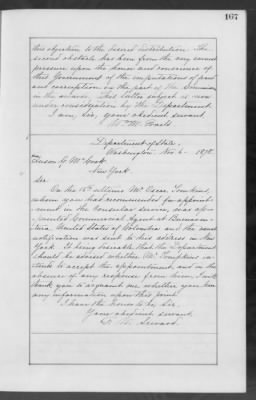 167
his objection to the second distribution. The
second obstacle has been from the very recent
pressure upon the honor and conscience of
this Government of the imputations of fraud
and corruption on the part of the Commission
on the awards. This latter subject is now
under consideration by the Department.
I am, sir, your obedient servant
Wm M. Evarts
Department of State,
Washington, Nov. 6 - 1878.
Anson G. McCook
New York
Sir
On the 15th ultimo Mr. Oscar Tompkins,
whom you had recommended for appoint-
ment in the consular service, was ap-
pointed Commercial Agent at Buenaven-
tura, United States of Colombia and the usual
notification was sent to his address in New
York. It being desirable that the Department
should be advised whether Mr. Tompkins in-
tends to accept the appointment, and in the
absence of any response from him, I will
thank you to acquaint me whether you have
any information upon this point.
I have the honor to be, Sir,
Your obedient servant,
F. W. Seward.